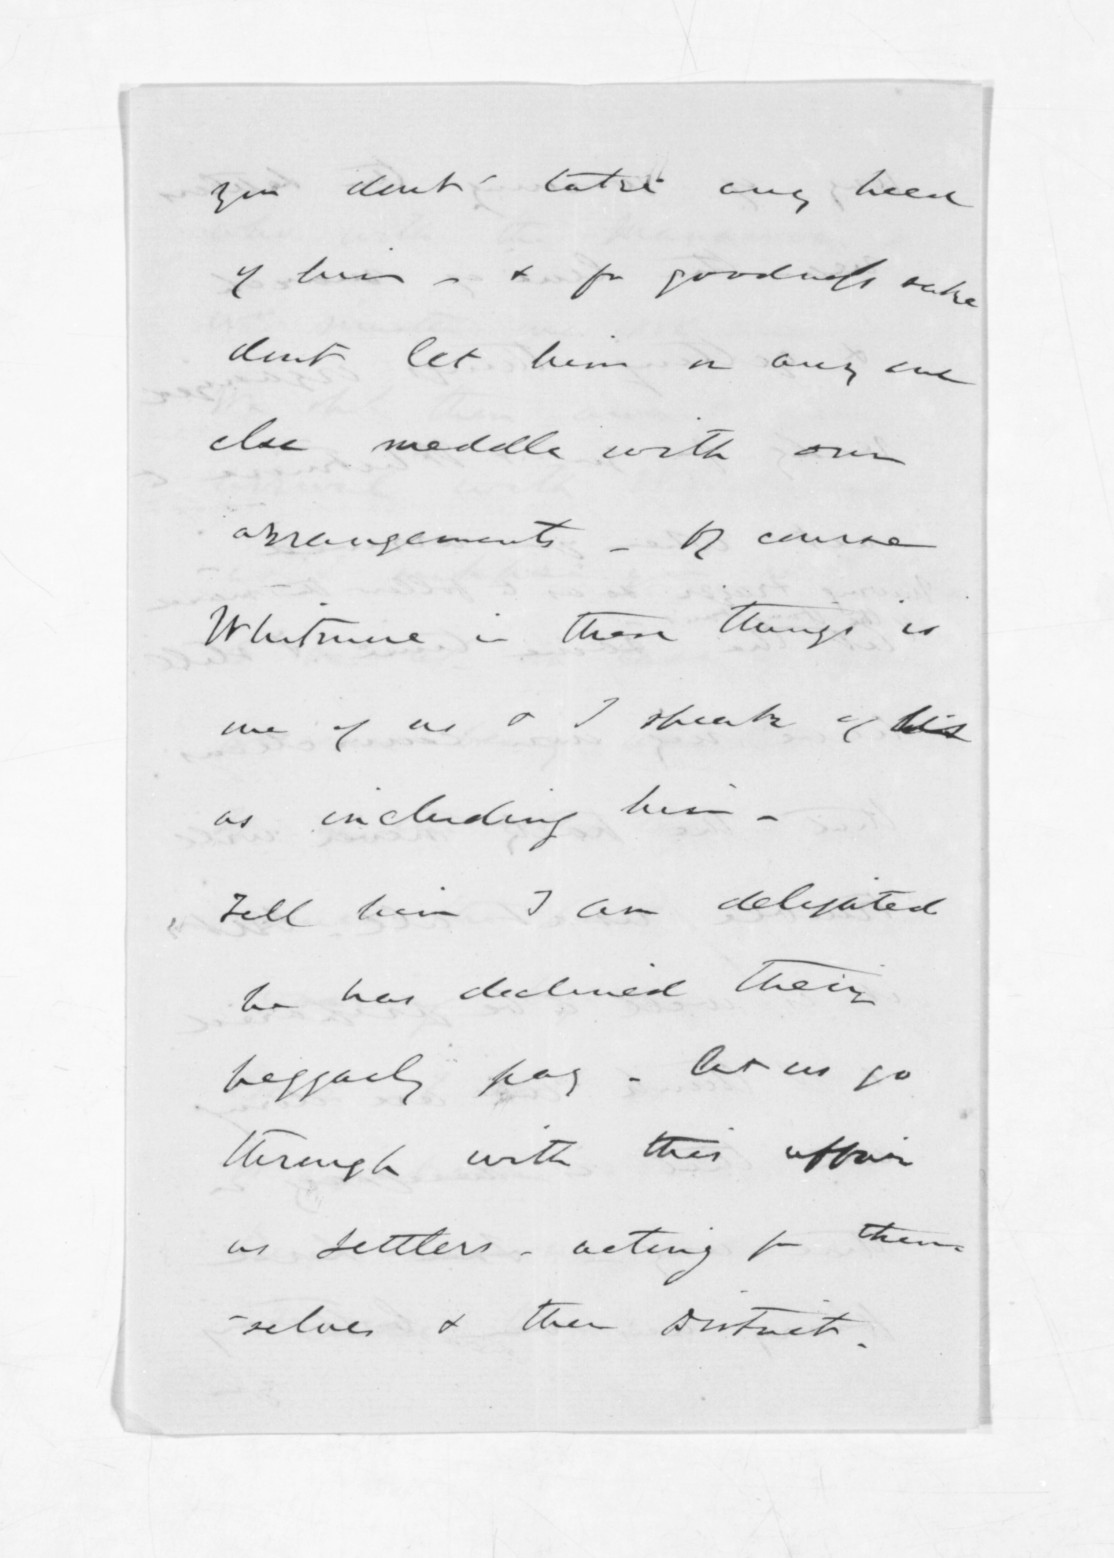 you dont take any heed
of him - & for goodness sake
dont let him or any one
else meddle with our
arrangements - Of course
Whitmore in these things is
one of us & I speak of
as including him -
Tell him I am delighted
he has declined their
beggarly pay - let us go
through with this affair
as settlers - acting for them-
-selves & their District.